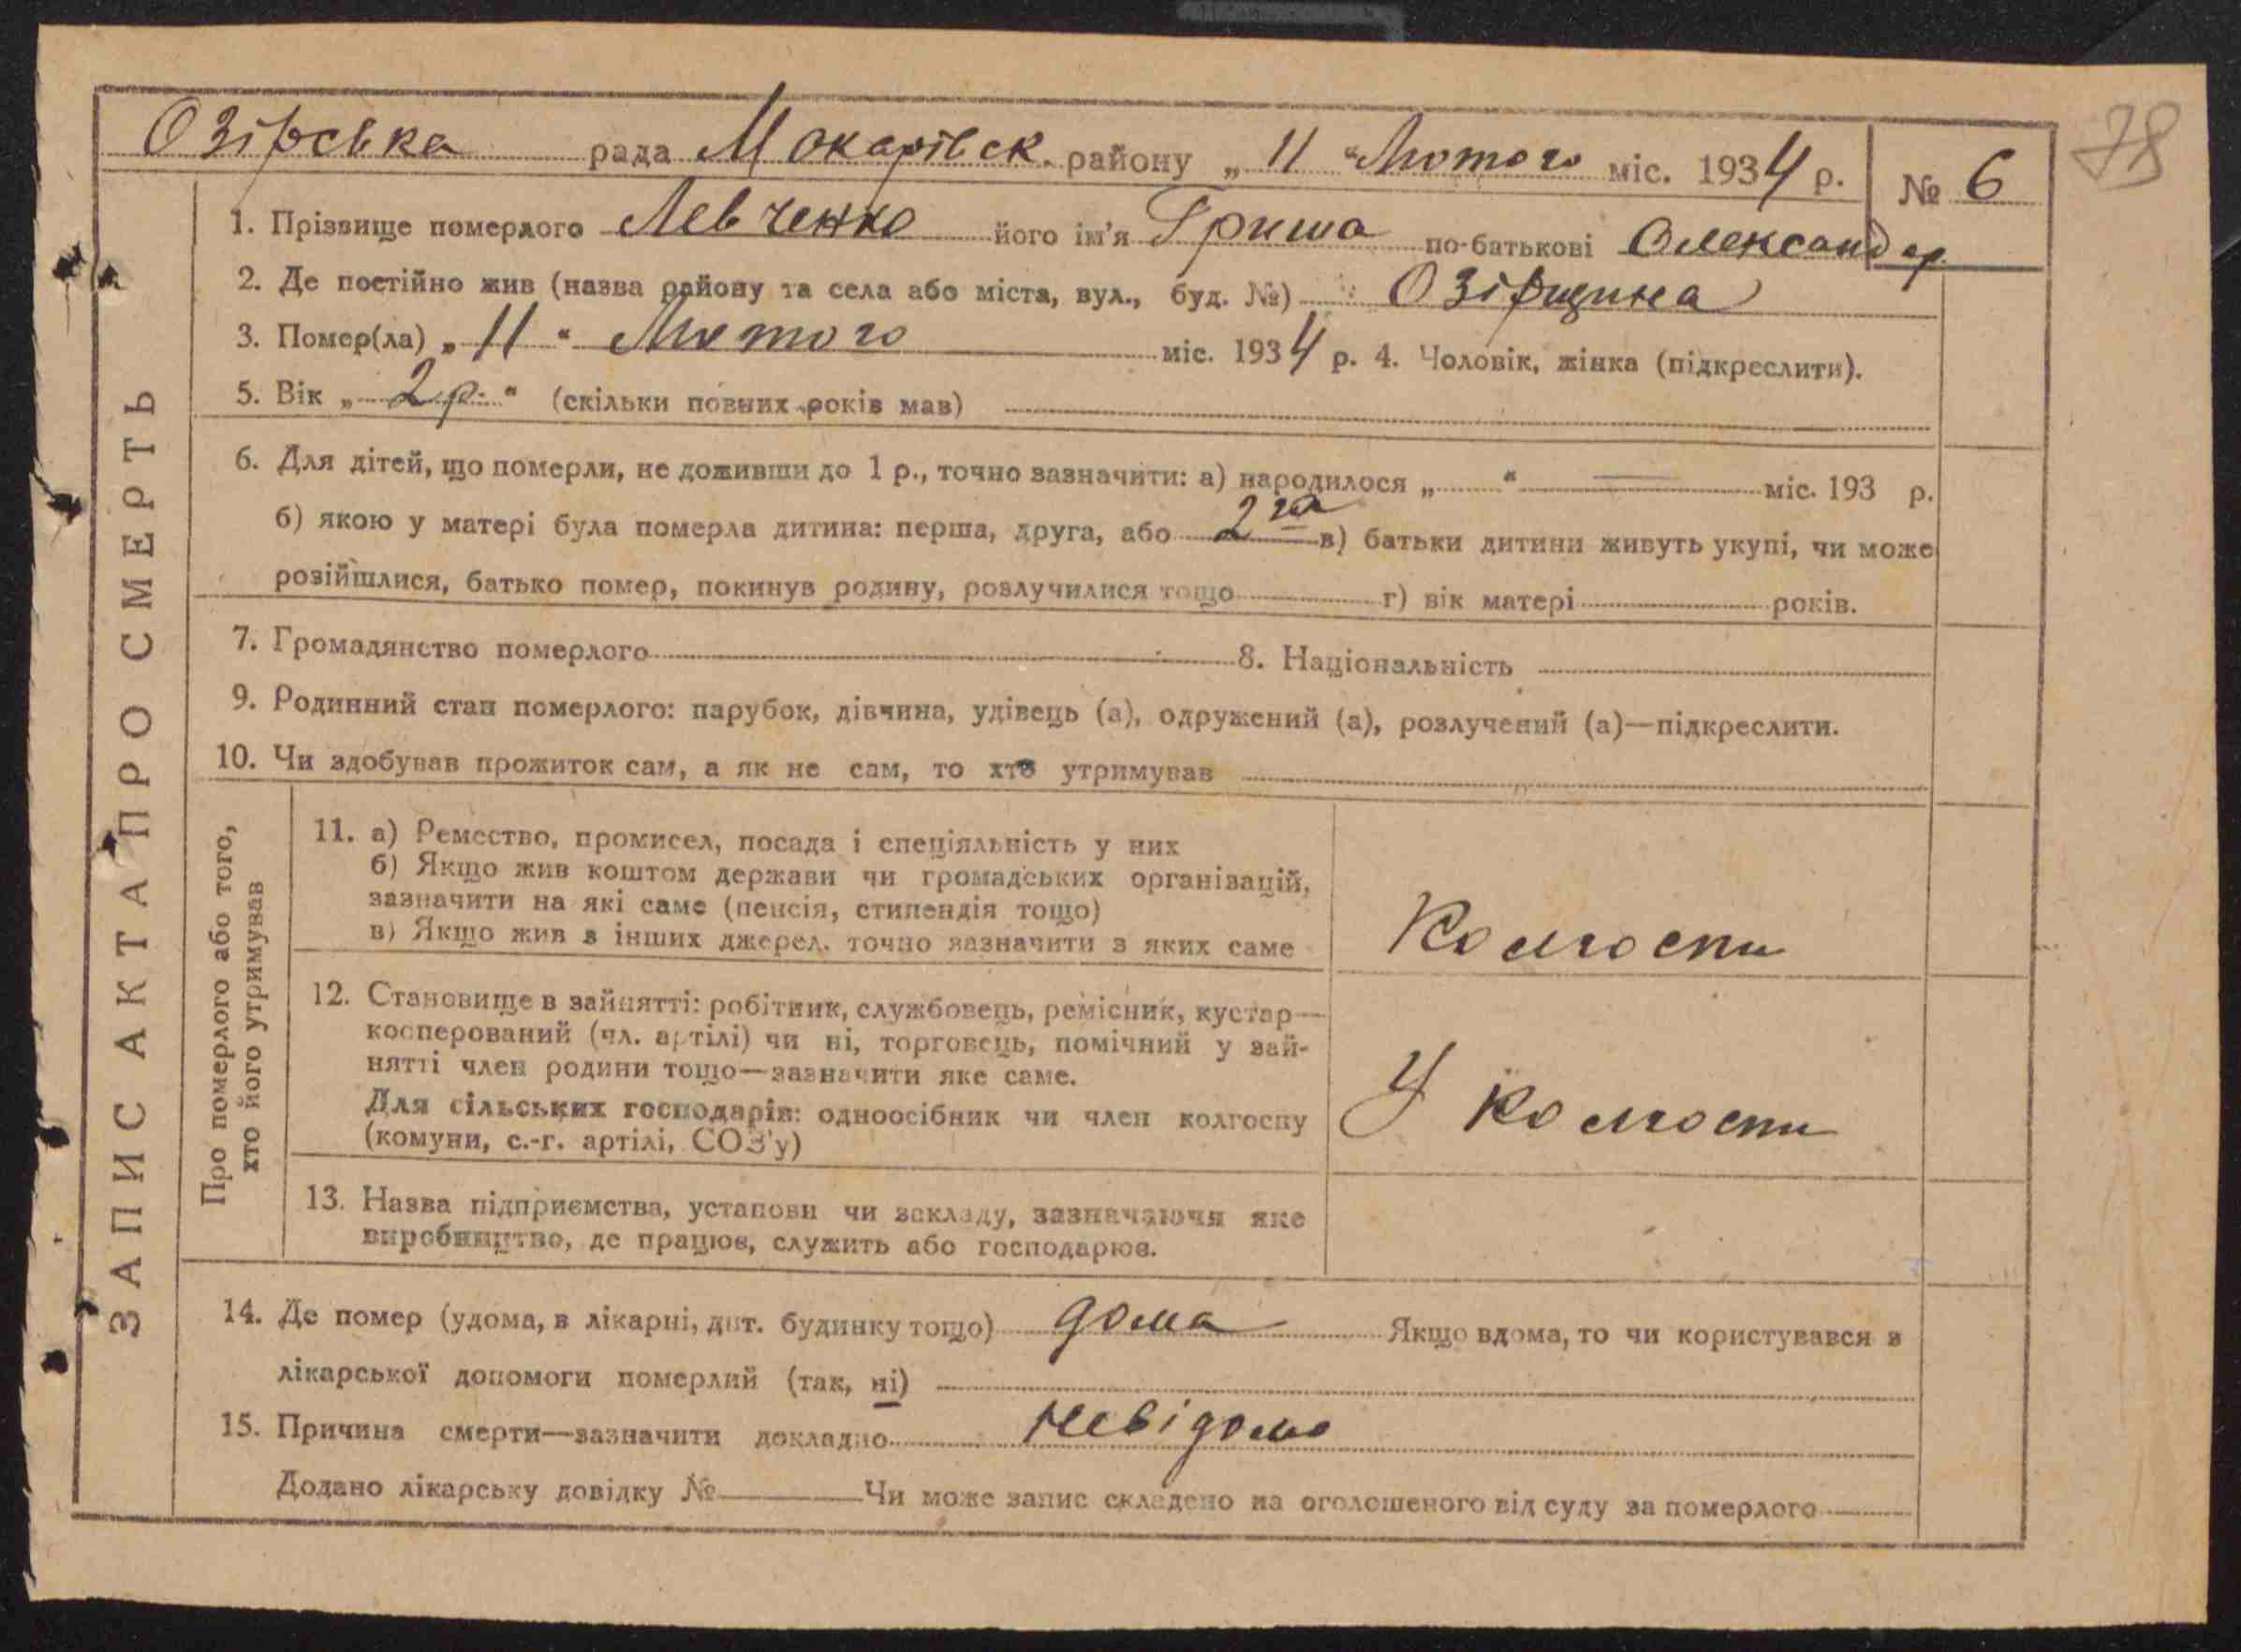 Озірська рада Макарівськ. району „ 11 “ Лютого міс. 1934 р. № 6
78
ЗАПИС АКТА ПРО СМЕРТЬ
1. Прізвище померлого Левченко його ім'я Гриша по-батькові Олександр.
2. Де постійно жив (назва району та села або міста, вул., буд. №) Озірщина
3. Помер(ла) „ 11 “ Лютого міс. 1934 р. 4. Чоловік, жінка (підкреслити).
5. Вік „ 2 р. “ (скільки повних років мав)
6. Для дітей, що померли, не доживши до 1 р., точно зазначити: а) народилося „ “ — міс. 193 р.
б) якою у матері була померла дитина: перша, друга, або 2га в) батьки дитини живуть укупі, чи може
розійшлися, батько помер, покинув родину, розлучилися тощо г) вік матері років.
7. Громадянство померлого 8. Національність
9. Родинний стан померлого: парубок, дівчина, удівець (а), одружений (а), розлучений (а)—підкреслити.
10. Чи здобував прожиток сам, а як не сам, то хто утримував
Про померлого або того,
хто його утримував
11. а) Ремество, промисел, посада і спеціяльність у них
б) Якщо жив коштом держави чи громадських організацій,
зазначити на які саме (пенсія, стипендія тощо)
в) Якщо жив з інших джерел, точно зазначити з яких саме
Колгоспи
12. Становище в зайнятті: робітник, службовець, ремісник, кустар—
кооперований (чл. артілі) чи ні, торговець, помічний у зай-
нятті член родини тощо—зазначити яке саме.
Для сільських господарів: одноосібник чи член колгоспу
(комуни, с.-г. артілі, СОЗ'у)
У колгоспи
13. Назва підприємства, установи чи закладу, зазначаючи яке
виробництво, де працює, служить або господарює.
14. Де помер (удома, в лікарні, дит. будинку тощо) дома Якщо вдома, то чи користувався з
лікарської допомоги померлий (так, ні)
15. Причина смерти—зазначити докладно невідомо
Додано лікарську довідку № Чи може запис складено на оголошеного від суду за померлого